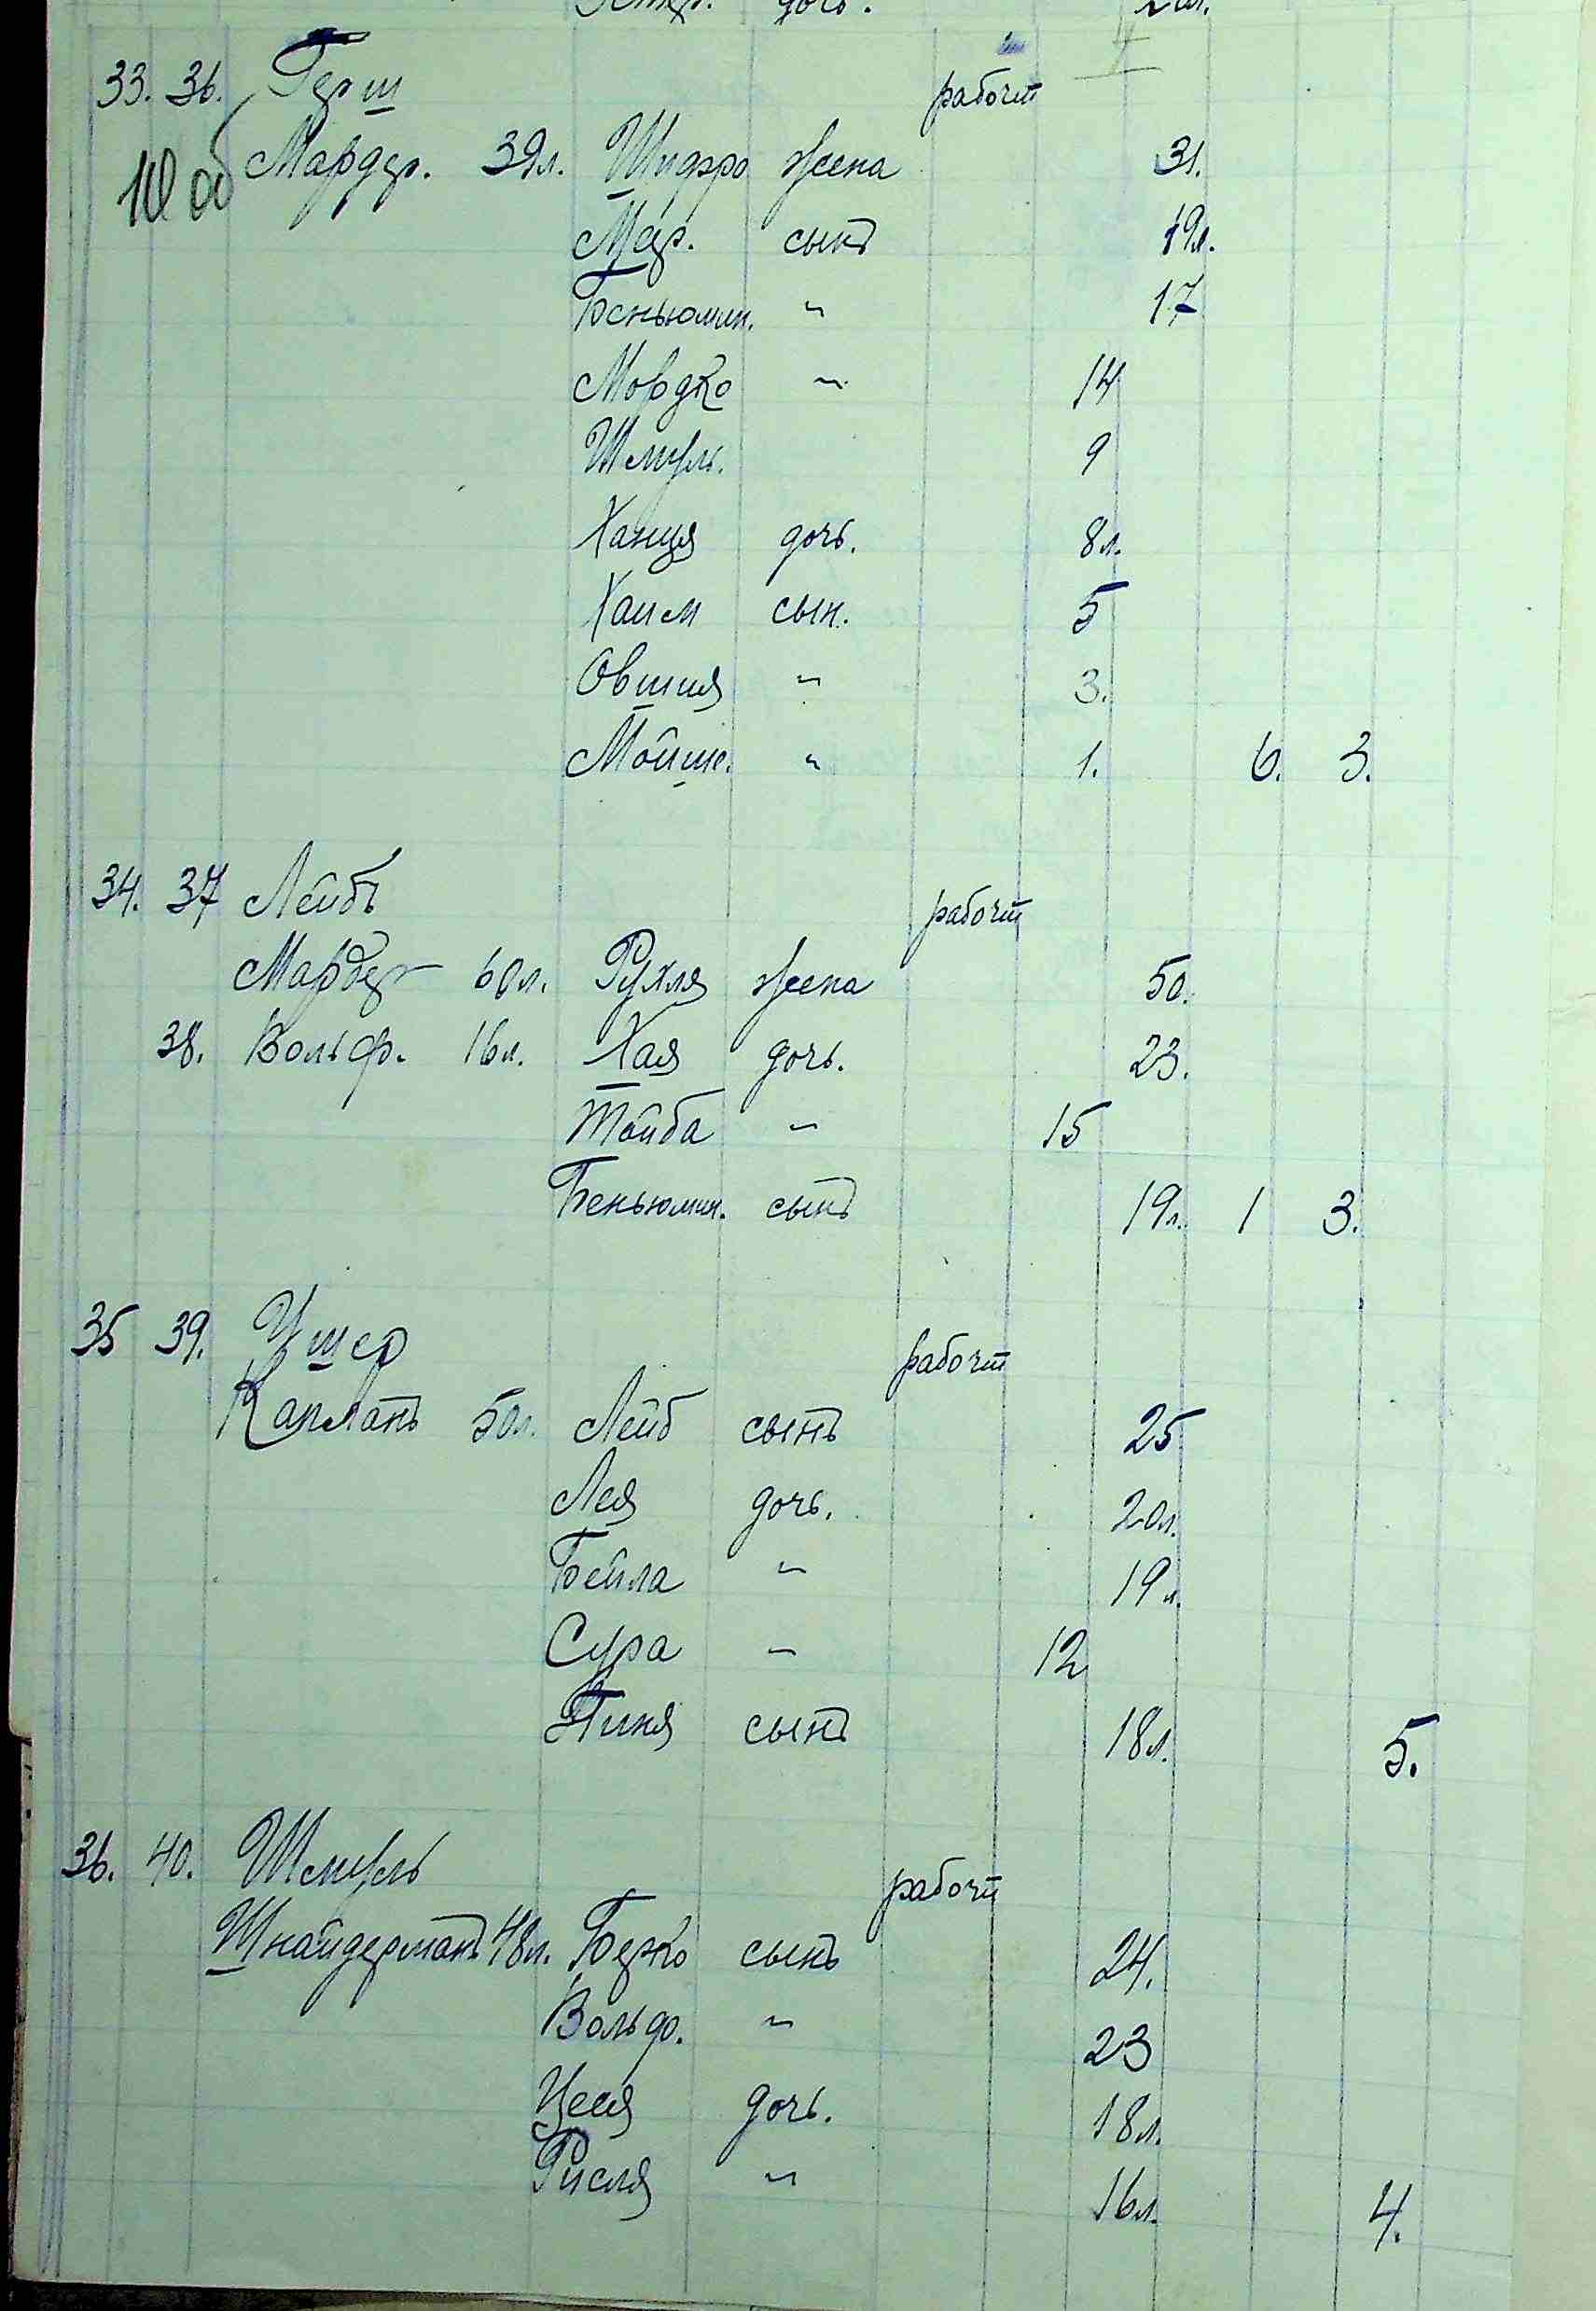 дочь.
33. 36. Герш рабочт
10 об Мардер. 39л. Шифра жена 31.
Мер. сынъ 19л.
Беньюмин. " 17
Мордко " 14
Шмуль. 9
Ханця дочь. 8л.
Хаим сын. 5
Овшия " 3.
Мойше. " 1. 6. 3.
34. 37 Лейбъ рабочт
Мардер 60л. Рухля жена 50.
38. Вольф. 16л. Хая дочь. 23.
Тойба " 15
Беньюмин. сынъ 19л. 1 3.
35 39. Ушер рабочт
Капланъ 50л. Лейб сынъ 25
Лея дочь. 20л.
Бейла " 19л.
Сура " 12
Пиня сынъ 18л. 5.
36. 40. Шмуль рабочт
Шнайдерманъ 48л. Берко сынъ 24.
Вольф. " 23
Цеся дочь. 18л.
Рисля " 16л. 4.